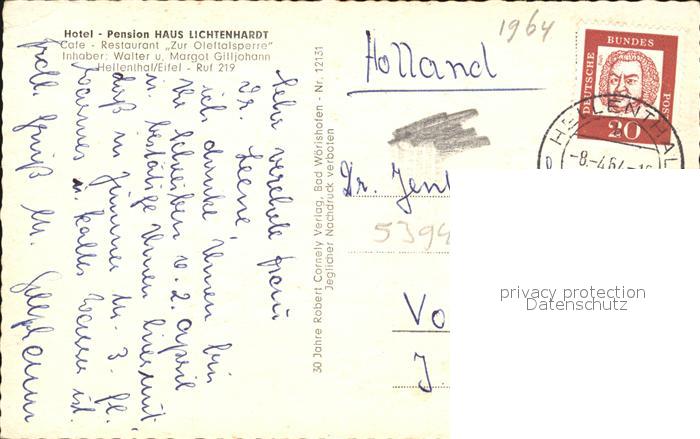 Hotel - Pension HAUS LICHTENHARDT
Cafe - Restaurant „Zur Oleftalsperre“
Inhaber: Walter u. Margot Gilljohann
Hellenthal/Eifel - Ruf 219
Sehr verehrte Frau
Dr. Leene,
ich danke Ihnen für
Ihr Schreiben v. 2. April
u. bestätige Ihnen hiermit
daß in Zimmer Nr. 3. fl.
warmes u. kaltes Wasser ist.
M. Gilljohann
30 Jahre Robert Cornely Verlag, Bad Wörishofen - Nr. 12131
Jeglicher Nachdruck verboten
1964
Holland
DEUTSCHE BUNDESPOST
20
HELLENTHAL
-8.-4.64-
Dr. Jen
5394
Vo
J
privacy protection
Datenschutz